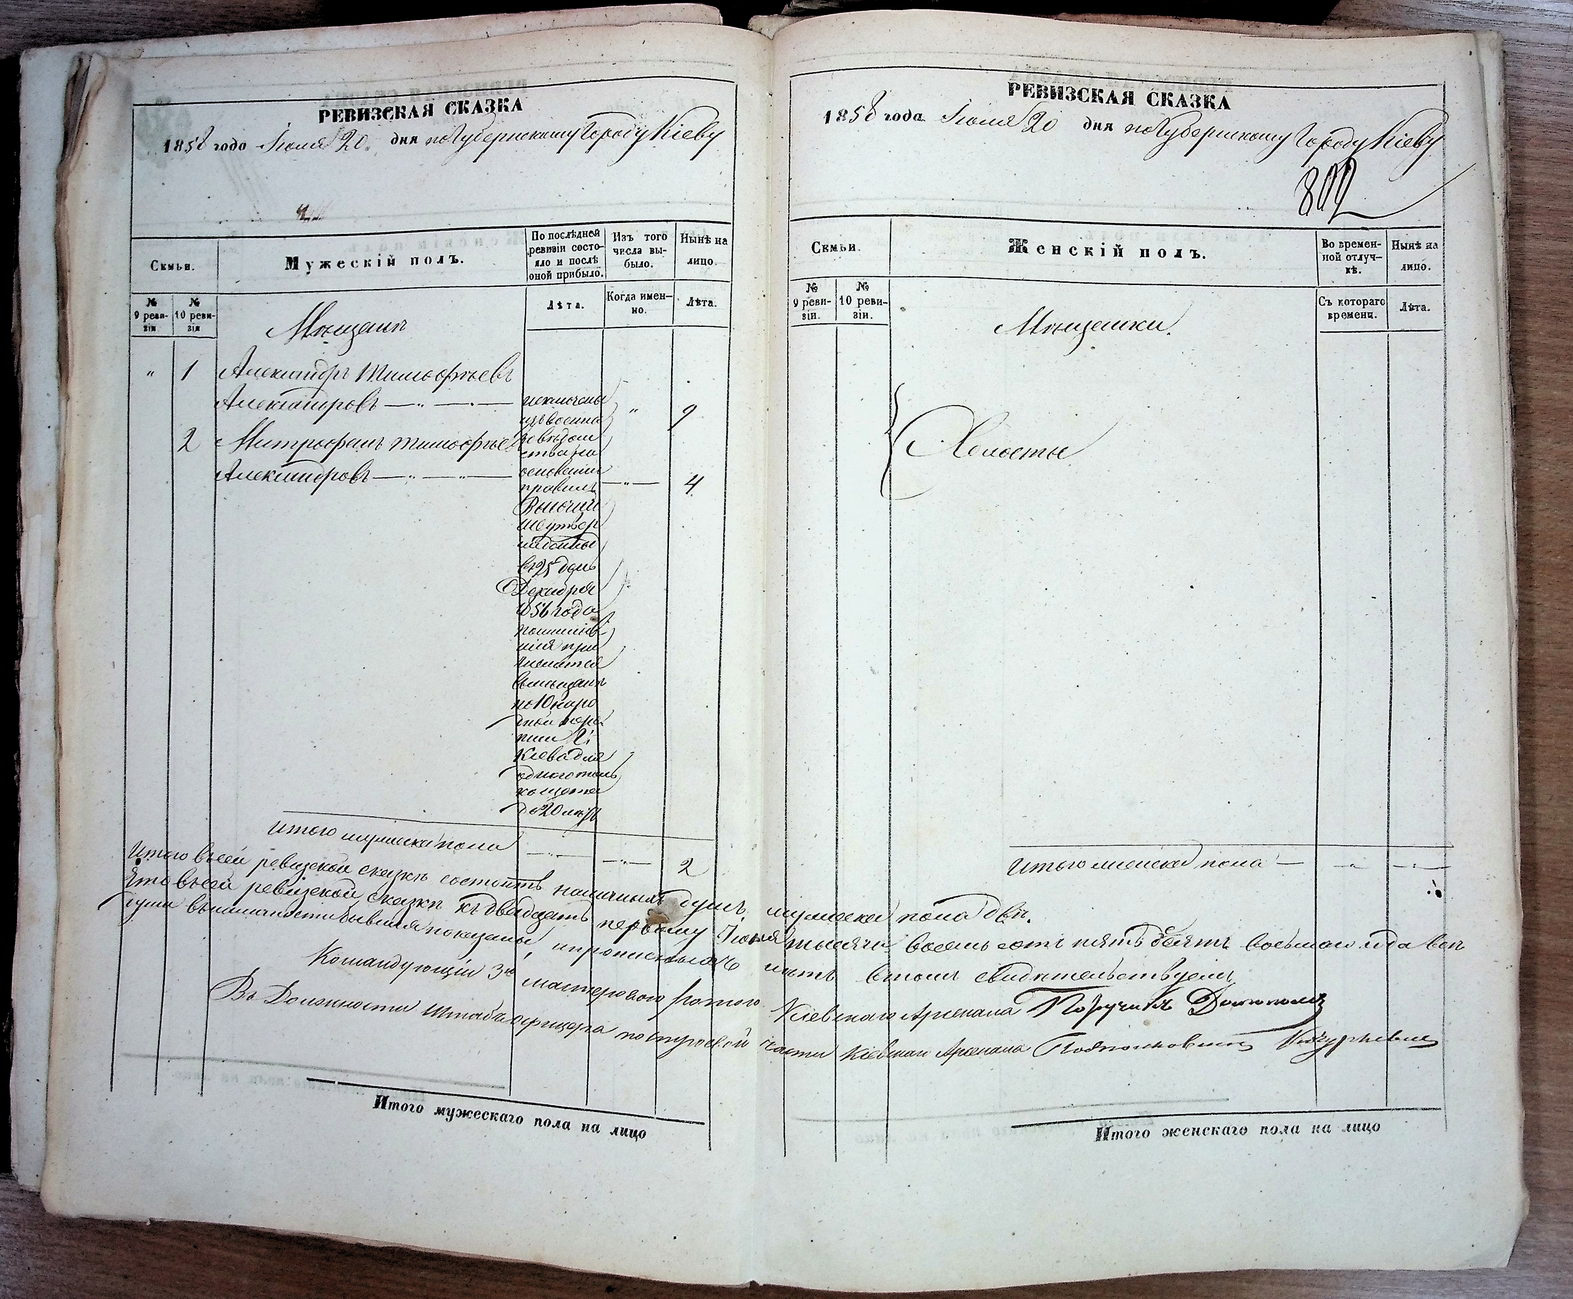 РЕВИЗСКАЯ СКАЗКА
1858 года Іюля 20 дня по Губернскому Городу Кіеву
Семьи.
Мужескій полъ.
По послѣдней ревизіи состояло и послѣ оной прибыло.
Изъ того числа выбыло.
Нынѣ на лицо.
№ 9 ревизіи
№ 10 ревизіи
Лѣта.
Когда именно.
Лѣта.
Мѣщане
" 1 Александръ Тимофѣевъ
Александровъ — " — " 9
2 Митрофанъ Тимофѣевъ
Александровъ — " — " — 4
исключены
изъ военна
го вѣдом
ства на
основаніи
правилъ
Высочай
ше утвер
жденныхъ
въ 25 день
Декабря
1856 года
для
до 20 лѣтъ
Итого мужеска пола — " — — " — 2
Итого въ сей ревизской сказкѣ состоитъ наличныхъ душъ мужеска пола двѣ.
Что въ сей ревизской сказкѣ къ двадцать первому Іюля тысяча восемь сотъ пять десятъ восьмаго года всѣ
души въ наличности бывшія показаны, и прописныхъ нѣтъ въ томъ свидѣтельствуемъ
Командующій 3ю мастеровою ротою Кіевскаго Арсенала Поручикъ
Въ Должности Штабъ-офицера по строевой части Кіевскаго Арсенала Подполковникъ
Итого мужескаго пола на лицо
РЕВИЗСКАЯ СКАЗКА
1858 года Іюля 20 дня по Губернскому Городу Кіеву
802
Семьи.
Женскій полъ.
Во временной отлучкѣ.
Нынѣ на лицо.
№ 9 ревизіи.
№ 10 ревизіи.
Съ котораго времени.
Лѣта.
Мѣщанки.
Холосты
Итого женска пола — " — " —
Итого женскаго пола на лицо